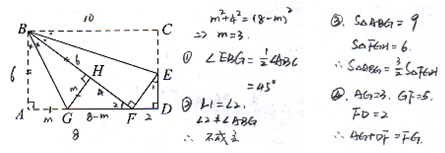 10
B
C
6
6
H
E
m
4
1
2
2
A
m
G
8-m
F
D
8
m²+4²=(8-m)²
⇒ m=3.
① ∠EBG=½∠ABC
=45°
② ∠1=∠2.
∠2≠∠ABG
∴ 不成立
③. S△ABG=9
S△FGH=6.
∴ S△ABG=3/2 S△FGH
④. AG=3. GF=5.
FD=2
∴ AG+DF=FG.